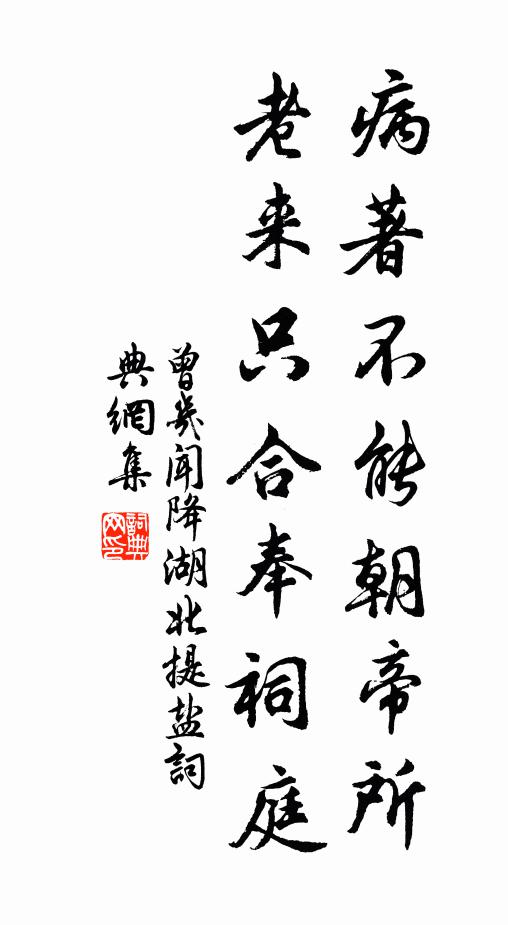 病著不能朝帝所
老来只合奉祠庭
曾几闻降湖北提盐詞
典網集
詞典網印